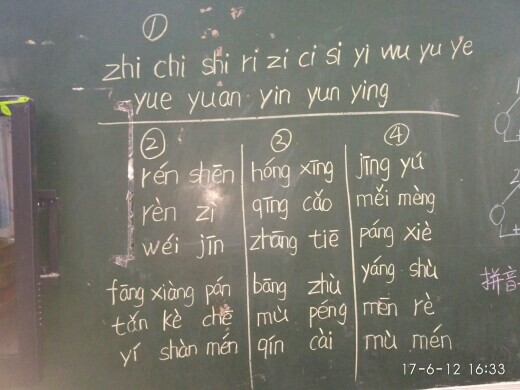 ①
zhi chi shi ri zi ci si yi wu yu ye
yue yuan yin yun ying
②
rén shēn
rèn zì
wéi jīn
fāng xiàng pán
tǎn kè chē
yí shàn mén
③
hóng xīng
qīng cǎo
zhāng tiē
bāng zhù
mù péng
qín cài
④
jīng yú
měi mèng
páng xiè
yáng shù
mēn rè
mù mén
拼音
17-6-12 16:33